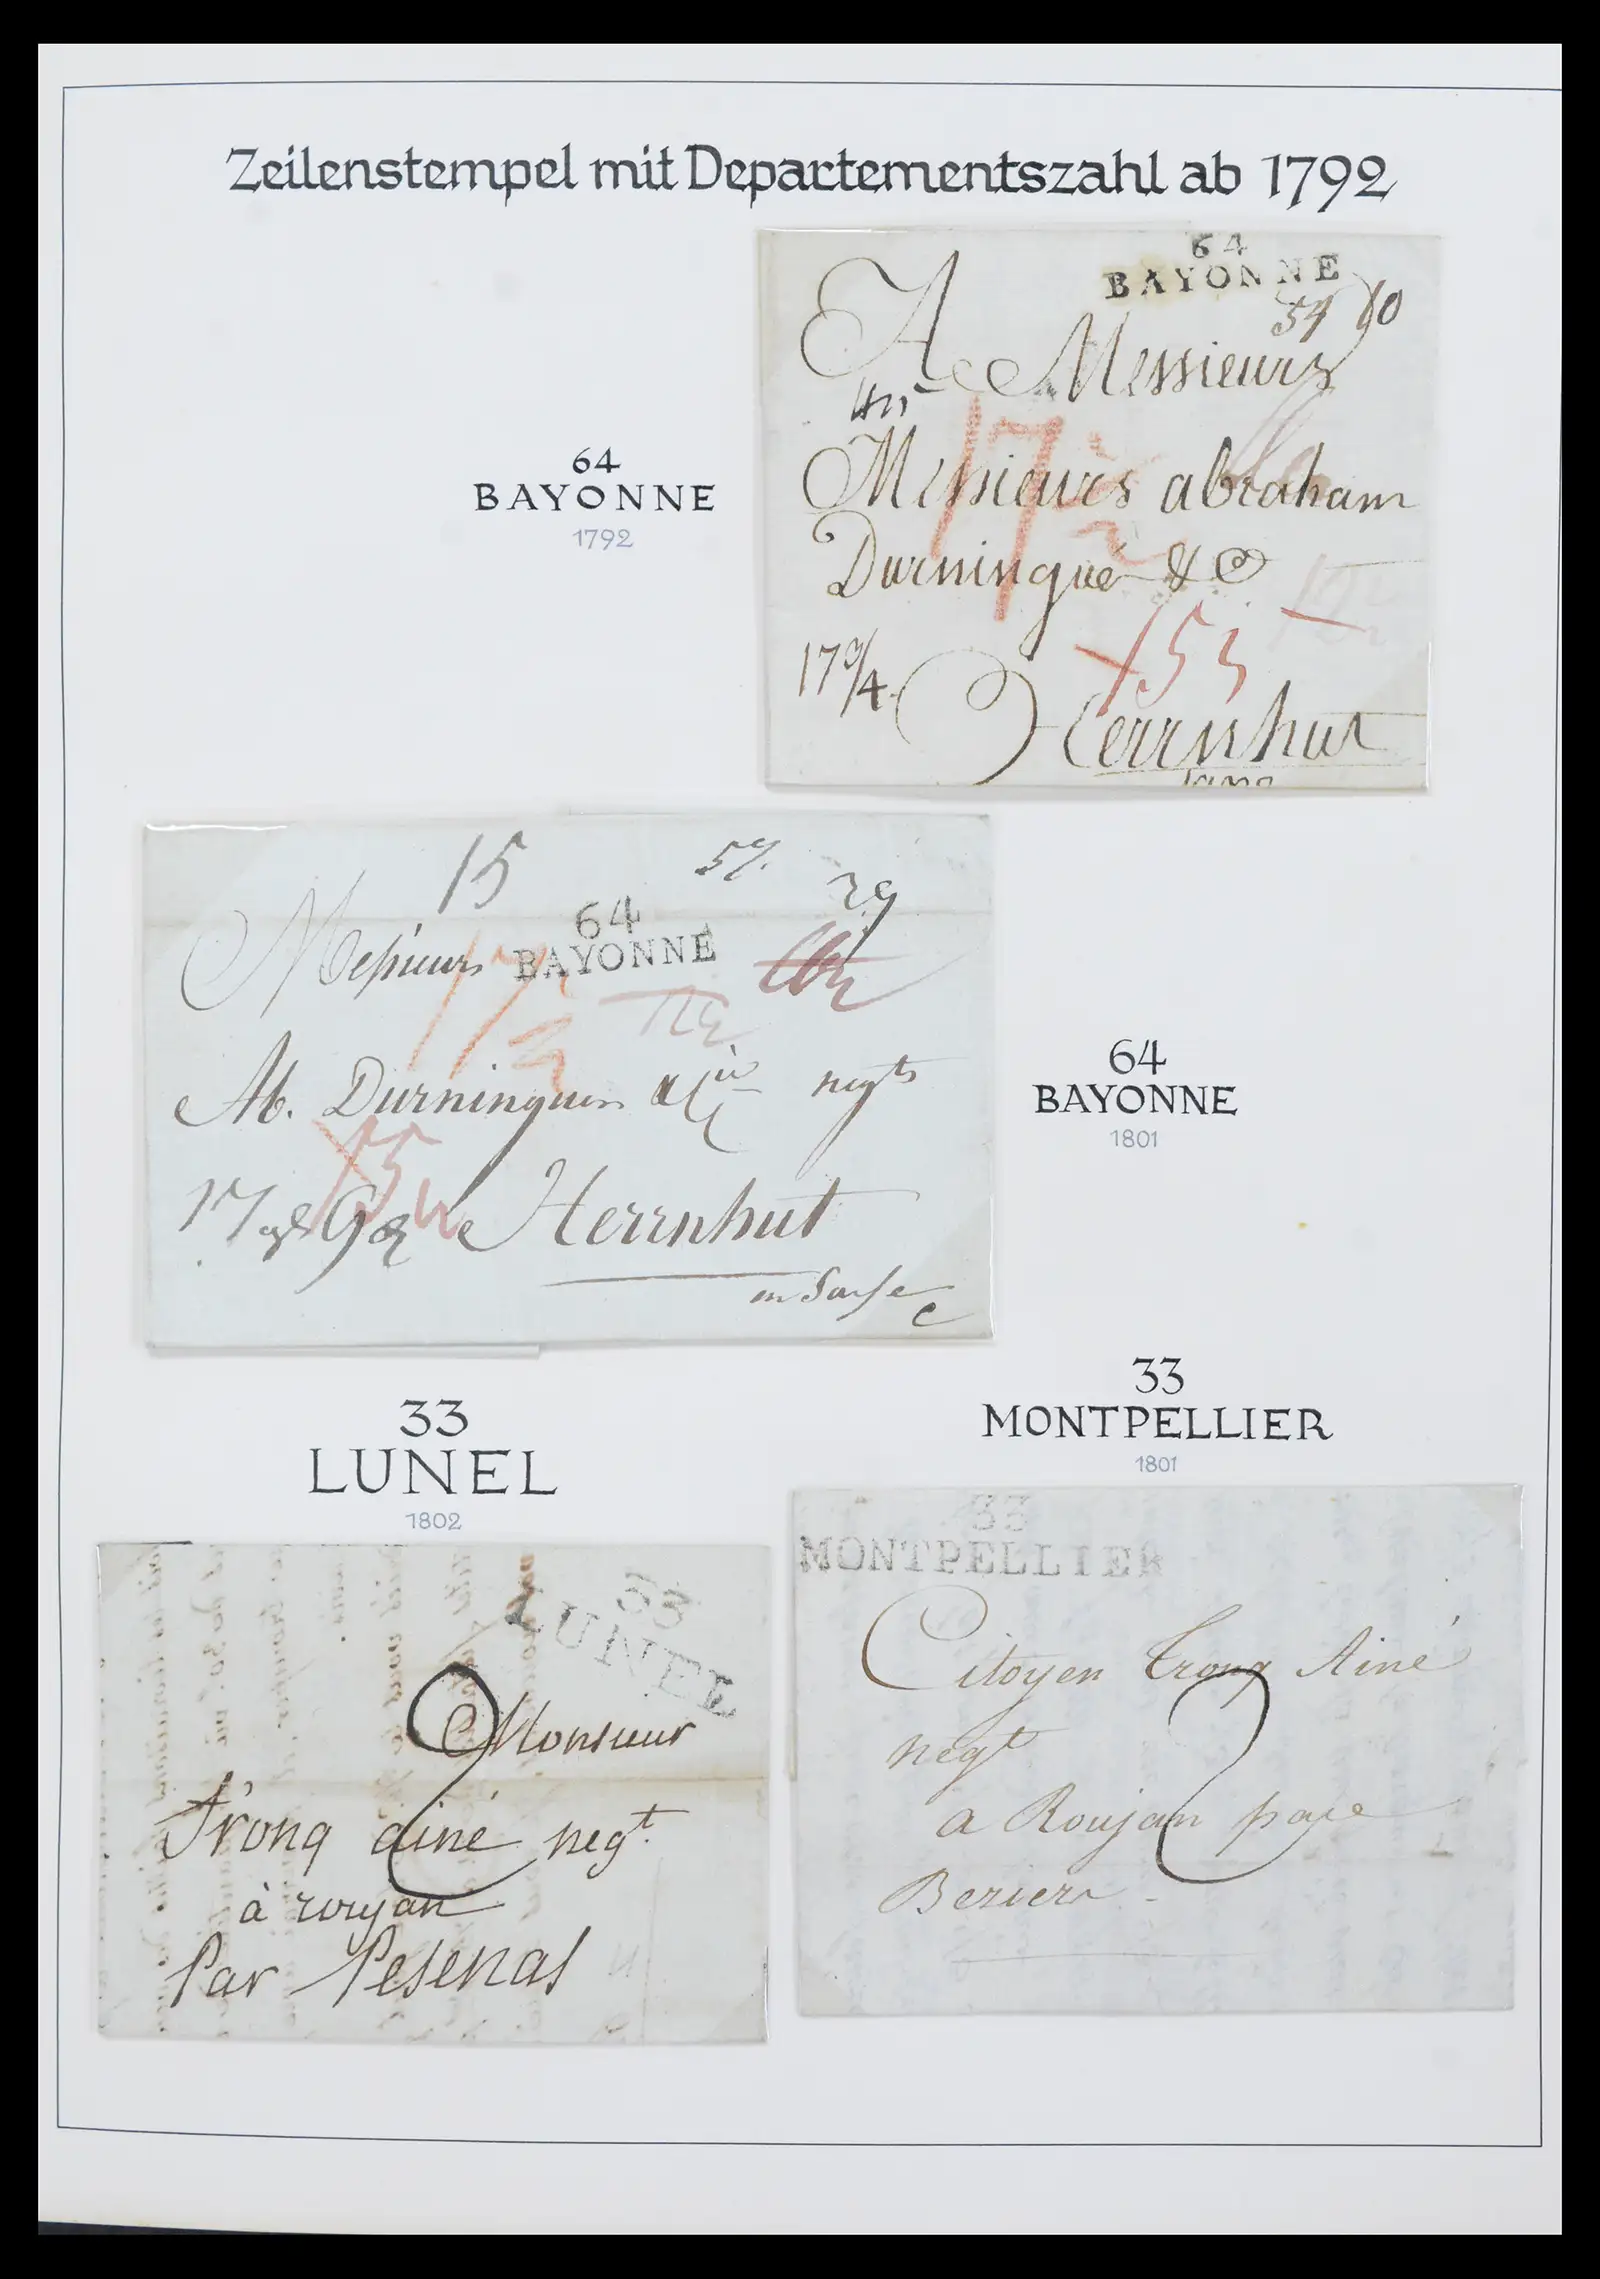 Zeilenstempel mit Departementszahl ab 1792
64
BAYONNE
1792
64
BAYONNE
54
A Messieurs
Messieurs abraham
Durningué & Co
17 9/4
Herrnhut
15
29
64
BAYONNE
Messieurs
Ab. Durninguer & Cie negts
17
Herrnhut
en Saxe
64
BAYONNE
1801
33
LUNEL
1802
33
LUNEL
Monsieur
Fronq ainé negt
à roujan
Par Pesenas
33
MONTPELLIER
1801
33
MONTPELLIER
Citoyen Cronq Ainé
negt
a Roujan par
Beziers